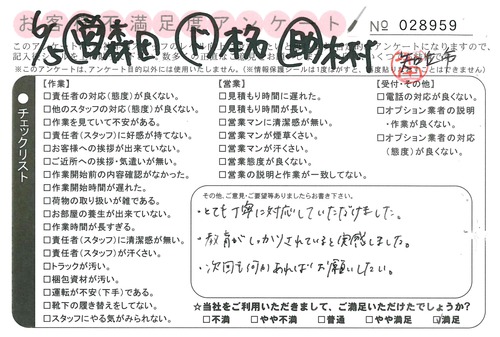 お客様不満足度アンケート
No 028959
6/5 営 森田 ド 本名 助 木村
【作業】
□責任者の対応(態度)が良くない。
□他のスタッフの対応(態度)が良くない。
□作業を見ていて不安がある。
□責任者(スタッフ)に好感が持てない。
□お客様への挨拶が出来ていない。
□ご近所への挨拶・気遣いが無い。
□作業開始前の内容確認がなかった。
□作業開始時間が遅れた。
□荷物の取り扱いが雑である。
□お部屋の養生が出来ていない。
□作業時間が長すぎる。
□責任者(スタッフ)に清潔感が無い。
□責任者(スタッフ)が汗くさい。
□トラックが汚い。
□梱包資材が汚い。
□運転が不安(下手)である。
□靴下の履き替えをしてない。
□スタッフにやる気がみられない。
【営業】
□見積もり時間に遅れた。
□見積もり時間が長い。
□営業マンに清潔感が無い。
□営業マンが煙草くさい。
□営業マンが汗くさい。
□営業態度が良くない。
□営業の説明と作業が一致してない。
【受付・その他】
□電話の対応が良くない。
□オプション業者の説明
・作業が良くない。
□オプション業者の対応
(態度)が良くない。
チェックリスト
その他、ご意見・ご要望等ありましたらお書き下さい。
・とても丁寧に対応していただけました。
・教育がしっかりされていると実感しました。
・次回も何かあればお願いしたい。
☆当社をご利用いただきまして、ご満足いただけたでしょうか?
□不満 □やや不満 □普通 □やや満足 ☑満足